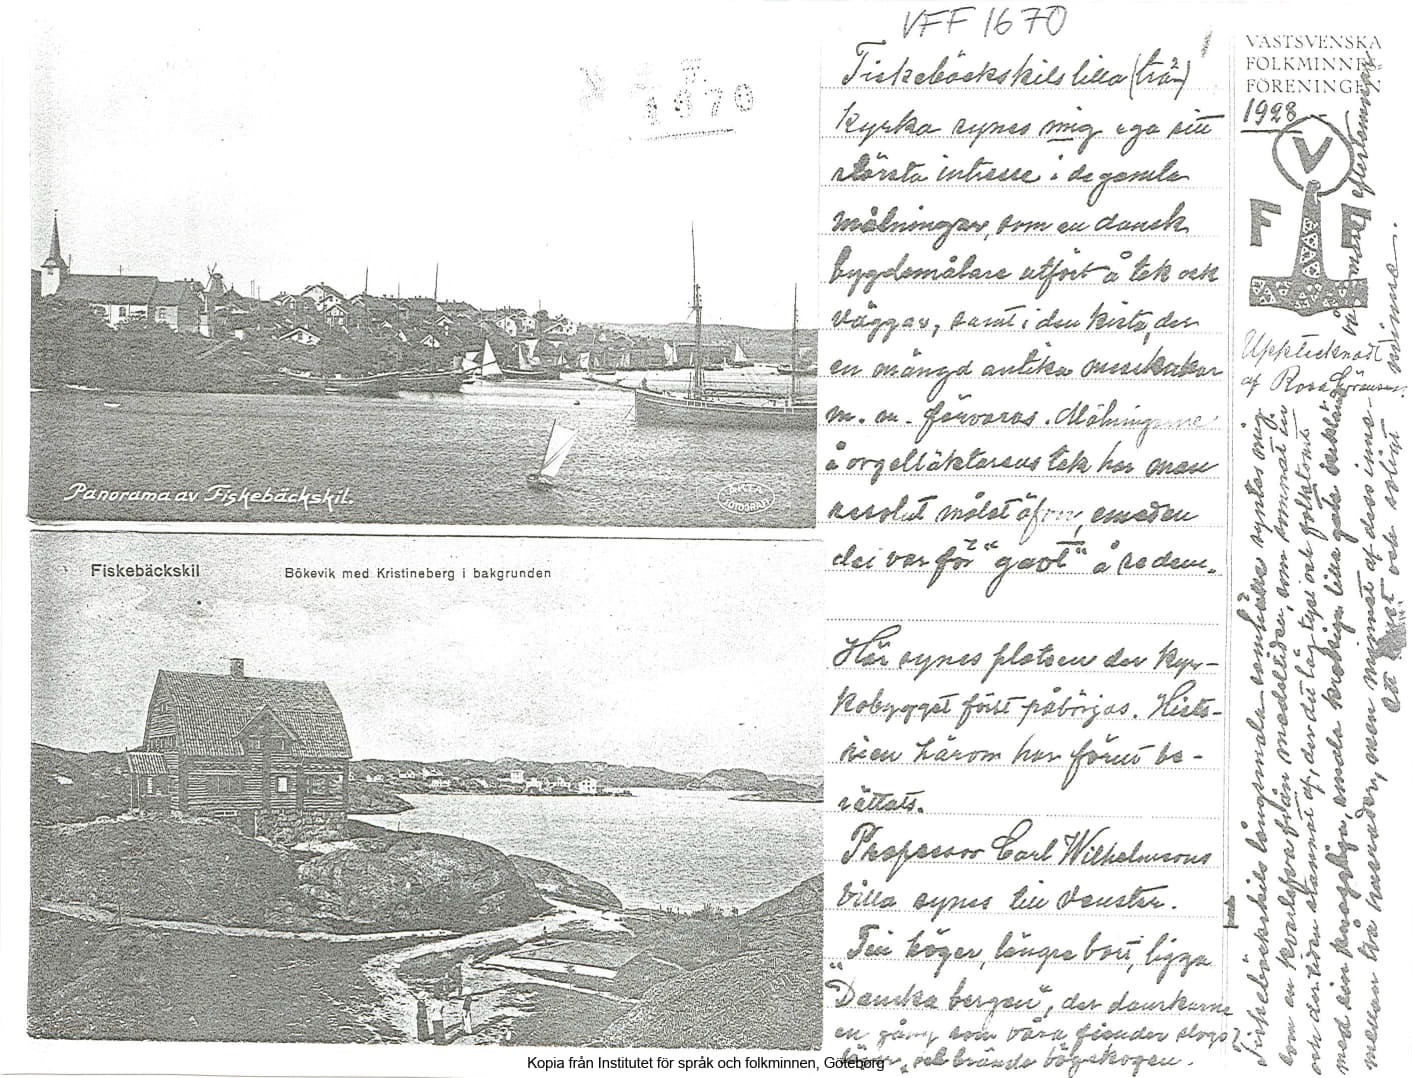 VFF 1670
1970
Panorama av Fiskebäckskil.
Fiskebäckskil
Bökevik med Kristineberg i bakgrunden
Fiskebäckskils lilla (trä?)
kyrka synes mig ega sitt
största intresse i de gamla
målningar, som en dansk
bygdemålare utfört å tak och
väggar, samt i den kista, der
en mängd antika mässhakar
m. m. förvaras. Målningarne
å orgelläktarens tak har man
resolut målat öfver, emedan
dei var för "gavt" å se dem.
Här synes platsen der kyr-
kobygget först påbörjas. Histo-
rien härom har förut be-
rättats.
Professor Carl Wilhelmsons
villa synes till venster.
Till höger, längre bort, ligga
"Danska bergen", der danskarne
en gång som våra fiender slogs
och brände bögskogen.
VÄSTSVENSKA
FOLKMINNES-
FÖRENINGEN
1928
V
F F
Upptecknadt
af Rosa Göransson
Fiskebäckskils långsmala samhälle syntes mig
som en kvarlefva från medeltiden, som kommit
och der tiden stannat af, der det låg type och
med sin knaggliga, smala krokiga lilla gata
mellan två husrader, men mynnat af dess inne-
vånare efterkommen
ett och solidt minne.
Kopia från Institutet för språk och folkminnen, Göteborg